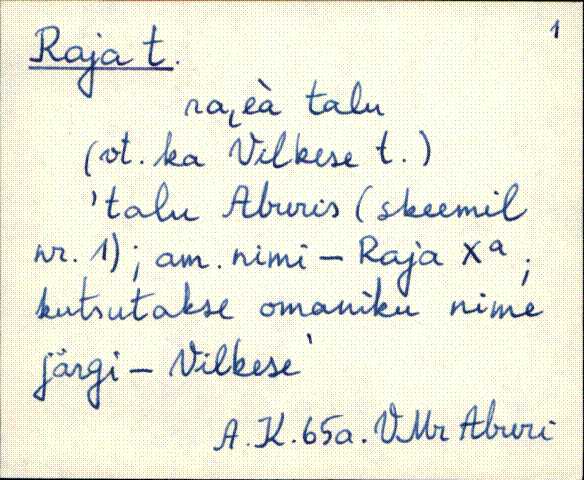 1
Raja t.
ra̮eà talu
(vt. ka Vilkese t.)
'talu Aburis (skeemil
nr. 1); am. nimi – Raja Xª;
kutsutakse omaniku nime
järgi – Vilkese'
A.K. 65a. VMr Aburi